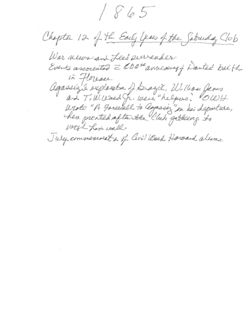 1865
Chapter 12 of the Early Years of the Saturday Club
War news and Lee's surrender
Events associated c 600th anniversary of Dante's birth
in Florence
Agassiz's exploration of Brazil, William James
and T. W. Ward Jr. were "helpers". OWH
wrote "A Farewell to Agassiz" on his departure,
then printed after the Club gathering to
wish him well
July commemoration of Civil War Harvard alums